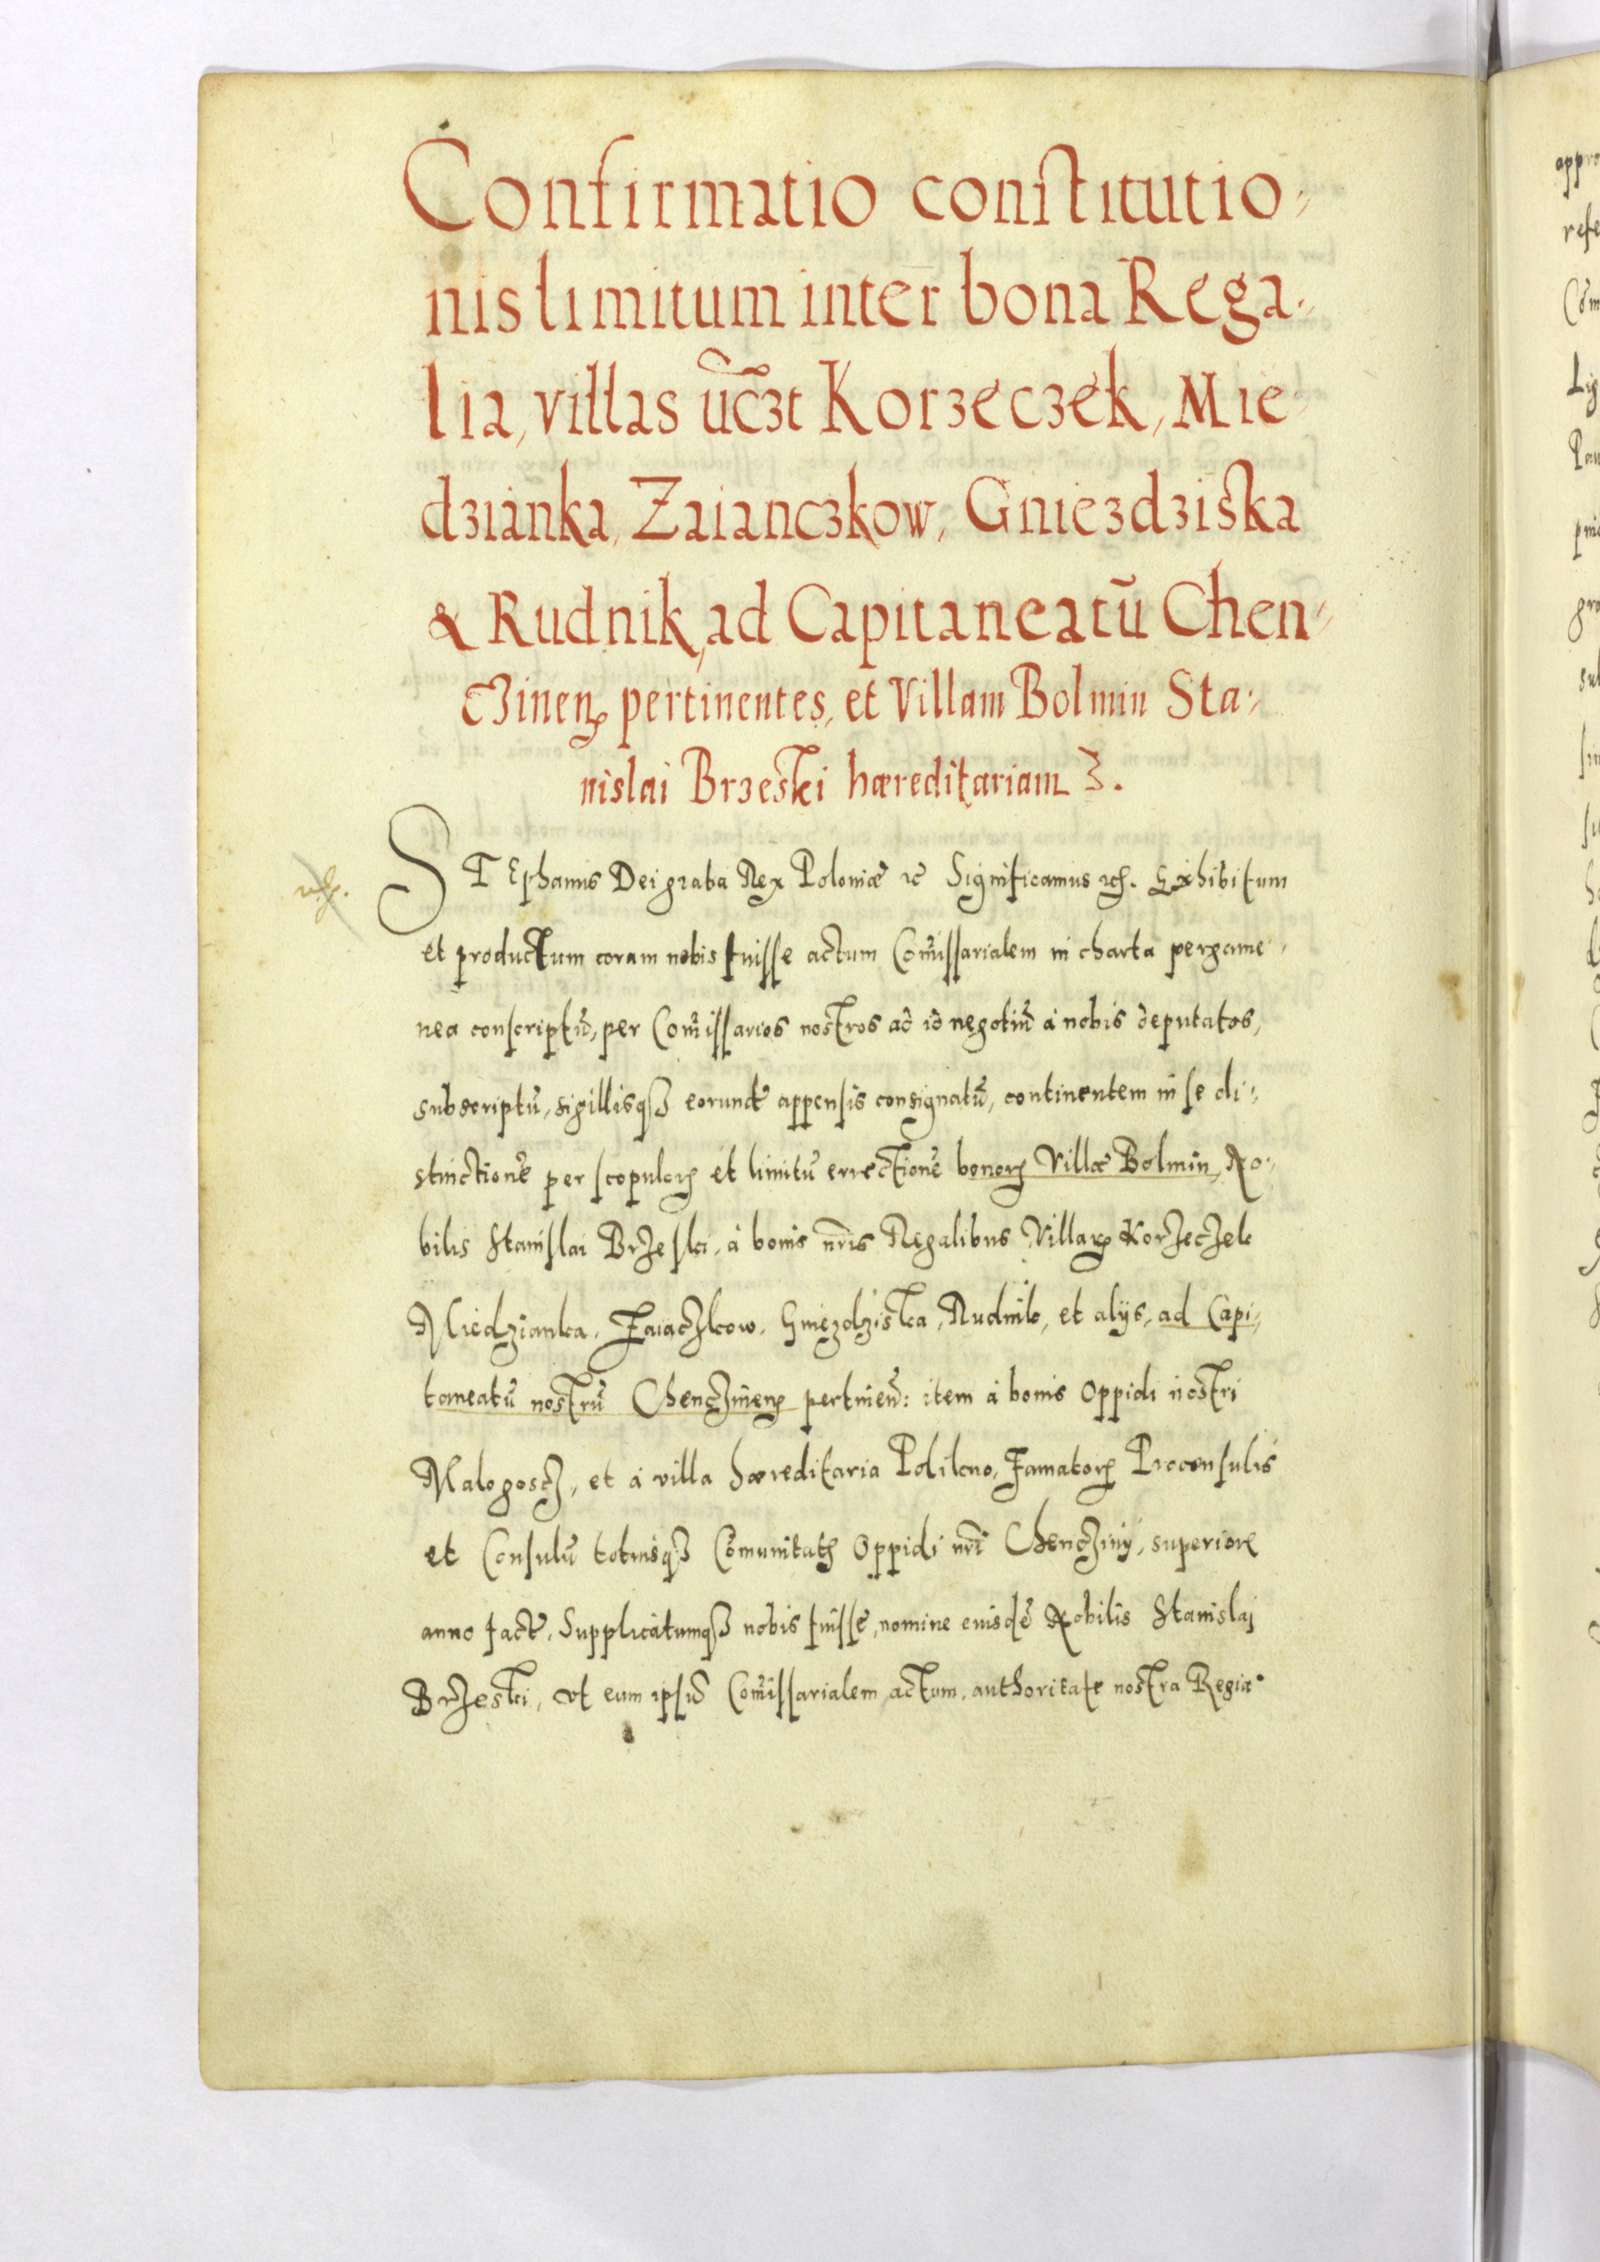 Confirmatio constitutio-
nis limitum inter bona Rega-
lia, villas uczt Korzeczek, Mie-
dzianka, Zaianczkow, Gniezdziska
& Rudnik, ad Capitaneatū Chen-
czinen pertinentes, et Villam Bolmin Sta-
nislai Brzeski hæreditariam.
STEphanus Dei gratia Rex Poloniæ &c Significamus &c. Exhibitum
et productum coram nobis fuisse actum Com̃issarialem in charta pergame-
nea conscriptũ, per Com̃issarios nostros ad id negotiũ à nobis deputatos,
subscriptũ, sigillisq3 eorundẽ appensis consignatũ, continentem in se di-
stinctionẽ per scopulorꝝ et limitũ errectionẽ bonorꝝ Villæ Bolmin, No-
bilis Stanislai Brzeski, à bonis nr̃is Regalibus Villarꝝ Korzeczek
Miedzianka, Zaiaczkow, Gniezdziska, Rudnik, et alijs, ad Capi-
taneatũ nostrũ Chenczinen pertinen̄: item à bonis Oppidi nostri
Malogoscz, et à villa hæreditaria Polikno, Famatorꝝ Proconsulis
et Consulũ totiusq3 Cõmunitatis Oppidi nr̃i Chencziny, superiorẽ
anno factẽ, Supplicatumq3 nobis fuisse, nomine eiusdẽ Nobilis Stanislaj
Brzeski, vt eum ipsũ Com̃issarialem actum, authoritate nostra Regia
appro
refe
Lig